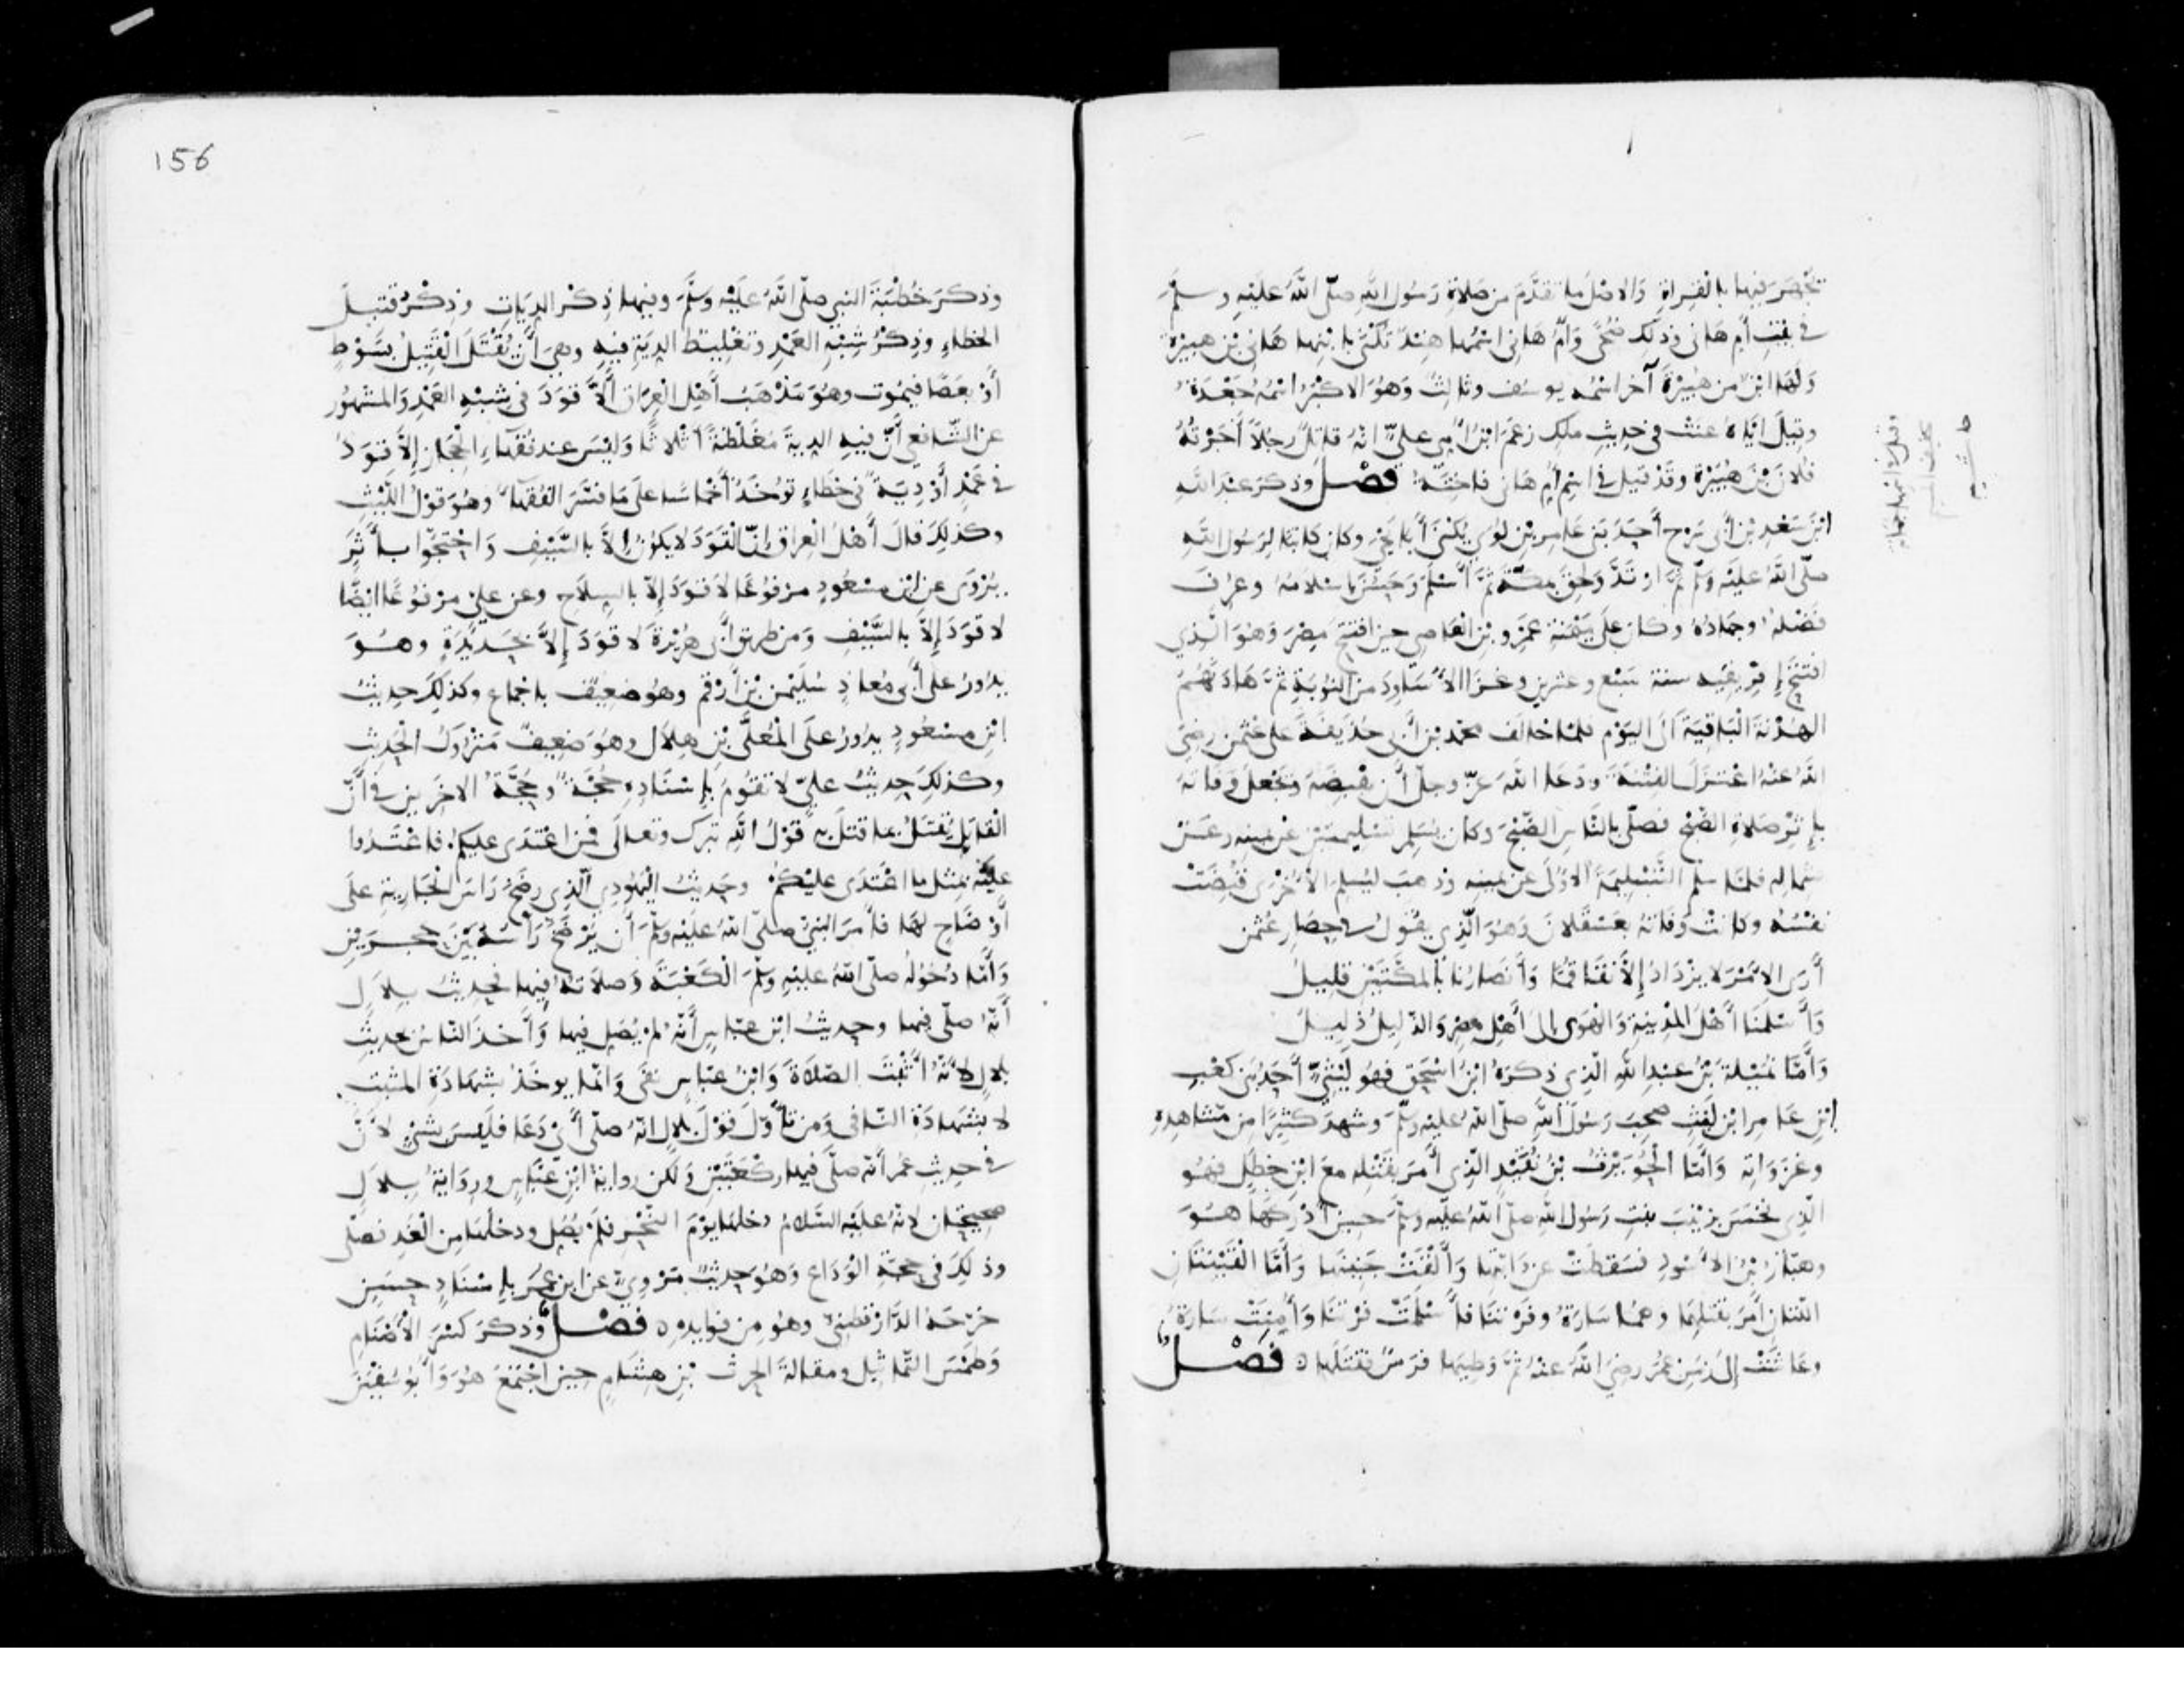 تجهر فيها بالقراة والاصل ما تقدم من صلاة رسول الله صلى الله عليه وسلم
في بيت أم هانى وذلك ضحى وأم هانى اسمها هند تكنى بابنها هانى بن هبيرة
ولها ابن من هبيرة آخر اسمه يوسف وثالث وهو الاكبر اسمه جعدة
وقيل اياه عنت في حديث ملك زعم ابن أمي علي انه قاتل رجلا أجرته
فلان بن هبيرة وقد قيل في اسم أم هانى فاختة فصل وذكر عبد الله
ابن سعد بن أبي سرح أحد بني عامر بن لؤي يكنى أبا يحيى وكان كاتبا لرسول الله
صلى الله عليه وسلم ثم ارتد ولحق بمكة ثم أسلم وحسن اسلامه وعرف
فضله وجهاده وكان على ميمنة عمرو بن العاصي حين افتتح مصر وهو الذي
افتتح إفريقيه سنة سبع وعشرين وغزا الأساود من النوبة ثم هادنهم
الهدنة الباقية الى اليوم فلما خالف محمد بن أبي حذيفة على عثمن رضي
الله عنه اعتزل الفتنة ودعا الله عز وجل أن يقبضه ويجعل وفاته
بإثر صلاة الصبح فصلى بالناس الصبح وكان يسلم تسليمتين عن يمينه وعن
شماله فلما سلم التسليمة الأولى عن يمينه وذهب ليسلم الأخرى قبضت
نفسه وكانت وفاته بعسقلان وهو الذي يقول في حصار عثمن
أرى الأمر لا يزداد إلا تفاقما وأنصارنا بالمكتين قليل
وأسلمنا أهل المدينة والهوى إلى أهل مصر والذليل ذليل
وأما نميلة بن عبد الله الذي ذكره ابن اسحق فهو ليثي أحد بني كعب
ابن عامر ابن ليث صحب رسول الله صلى الله عليه وسلم وشهد كثيرا من مشاهده
وغزواته وأما الحويرث بن نقيد الذي أمر بقتله مع ابن خطل فهو
الذي نخس بزينب بنت رسول الله صلى الله عليه وسلم حين أدركها هو
وهبار بن الأسود فسقطت عن دابتها وألقت جنينها وأما القينتان
اللتان أمر بقتلهما وهما سارة وفرتنا فأسلمت فرتنا وأمنت سارة
وعاشت إلى زمن عمر رضي الله عنه ثم وطيها فرس فقتلها فصل
حاشية
156
وذكر خطبة النبي صلى الله عليه وسلم وفيها ذكر الديات وذكر قتيل
الخطاء وذكر شبه العمد وتغليظ الدية فيه وهي أن يقتل القتيل بسوط
أو بعصا فيموت وهو مذهب أهل العراق ألا قود في شبه العمد والمشهور
عن الشافعي أن فيه الدية مغلظة أثلاثا وليس عند فقهاء الحجاز إلا قود
في عمد أو دية في خطاء توخذ أخماسا على ما فسر الفقهاء وهو قول الليث
وكذلك قال أهل العراق إن القود لا يكون إلا بالسيف واحتجوا بأثر
يروى عن ابن مسعود مرفوعا لا قود إلا بالسلاح وعن علي مرفوعا ايضا
لا قود إلا بالسيف ومن طريق أبي هريرة لا قود إلا بحديدة وهو
يدور على أبي معاذ سليمن بن أرقم وهو ضعيف باجماع وكذلك حديث
ابن مسعود يدور على المعلى بن هلال وهو ضعيف متروك الحديث
وكذلك حديث علي لا تقوم بإسناده حجة وحجة الاخرين في أن
القاتل يقتل بما قتل به قول الله تبرك وتعالى فمن اعتدى عليكم فاعتدوا
عليه بمثل ما اعتدى عليكم وحديث اليهودي الذي رضخ راس الجارية على
أوضاح لها فأمر النبي صلى الله عليه وسلم أن يرضخ رأسه بين حجرين
وأما دخوله صلى الله عليه وسلم الكعبة وصلاته فيها فحديث بلال
أنه صلى فيها وحديث ابن عباس أنه لم يصل فيها وأخذ الناس بحديث
بلال لأنه أثبت الصلاة وابن عباس نفى وانما يوخذ بشهادة المثبت
لا بشهادة النافى ومن تأول قول بلال انه صلى أي دعا فليس بشئ لأن
في حديث عمر أنه صلى فيها ركعتين ولكن رواية ابن عباس ورواية بلال
صحيحتان لانه عليه السلام دخلها يوم النحر فلم يصل ودخلها من الغد فصلى
وذلك في حجة الوداع وهو حديث مروي عن ابن عمر بإسناد حسن
خرجه الدارقطني وهو من فوايده فصل وذكر كسر الأصنام
وطمس التماثيل ومقالة الحرث بن هشام حين اجتمع هو وأبو سفين